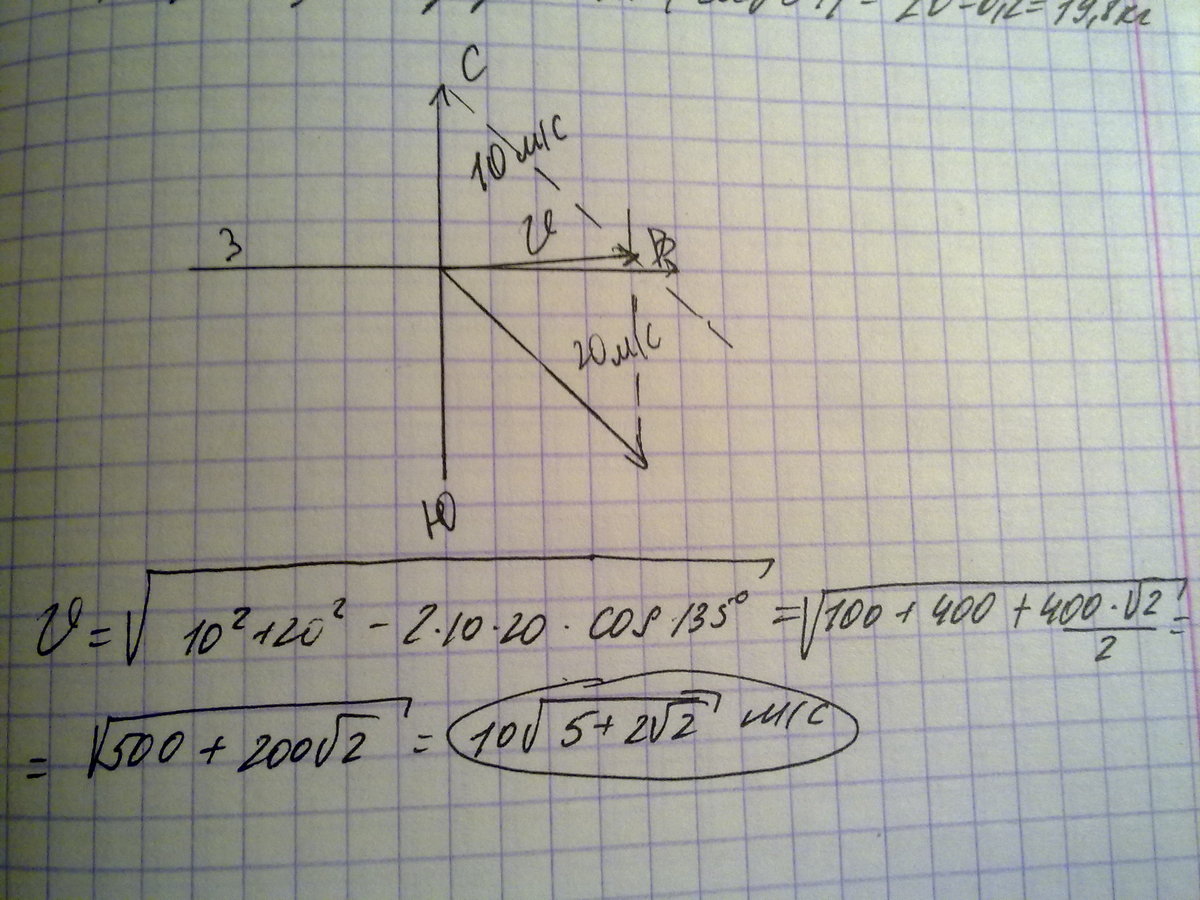 = 20-0,2=19,8кг
С
10 м/с
З
υ
В
20 м/с
Ю
υ = √(10²+20² - 2·10·20 · cos 135°) = √(100 + 400 + 400·√2/2) =
= √(500 + 200√2) = 10√(5+2√2) м/с